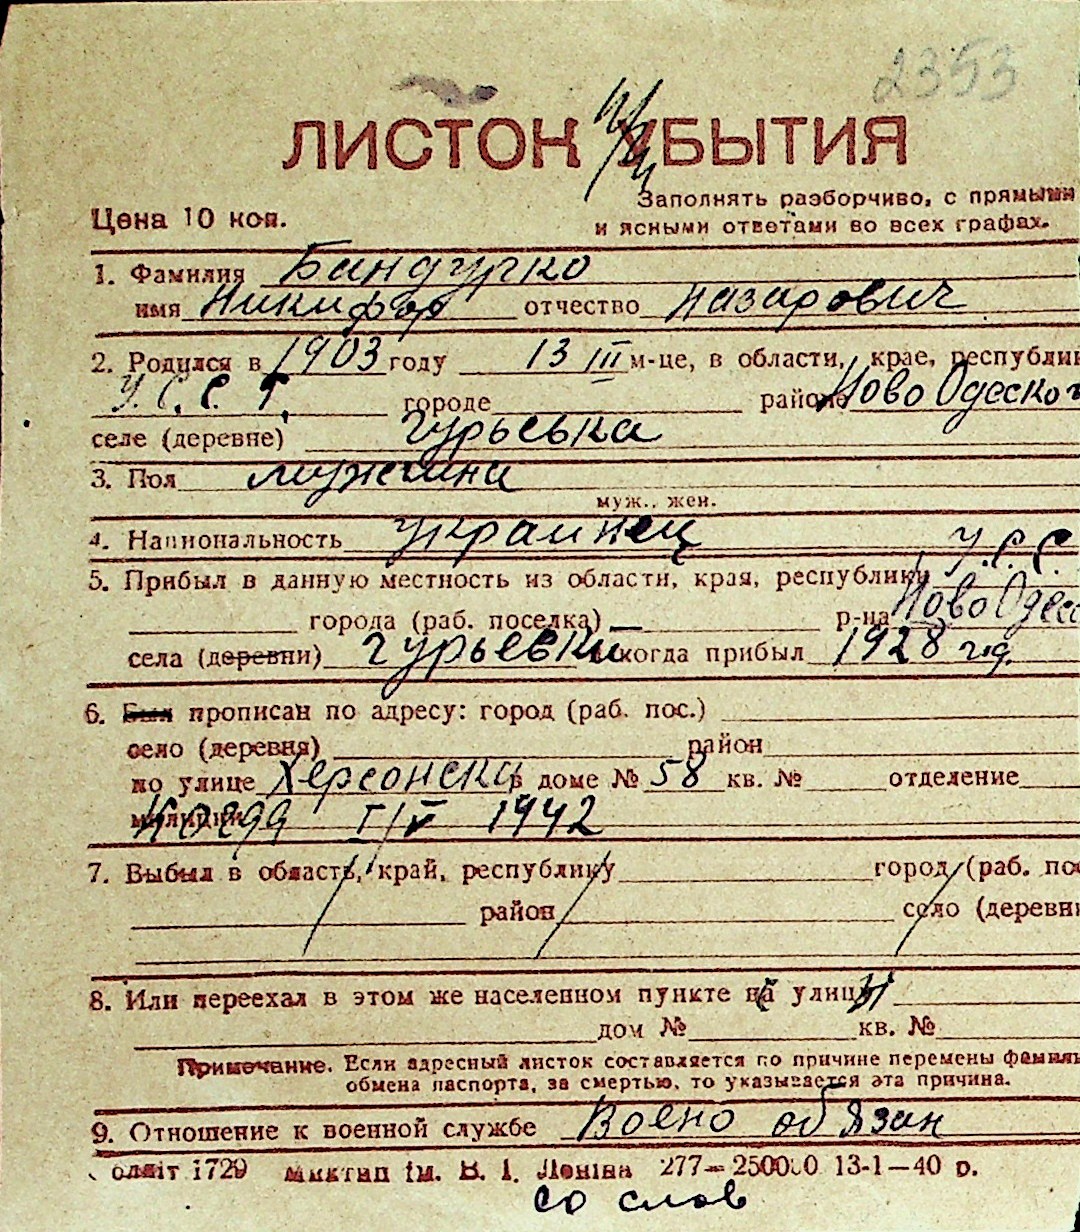 2353
ЛИСТОК УБЫТИЯ
Заполнять разборчиво, с прямыми
Цена 10 коп. и ясными ответами во всех графах.
1. Фамилия Бандурко
имя Никифор отчество Назарович
2. Родился в 1903 году 13 III м-це, в области, крае, республик
У.С.С.Р. городе районе Ново Одеског
селе (деревне) гурьевка
3. Пол мужчина
муж., жен.
4. Национальность украинец
5. Прибыл в данную местность из области, края, республики У.С.С.
города (раб. поселка) — р-на Ново Одес
села (деревни) гурьевки и когда прибыл 1928 год
6. Был прописан по адресу: город (раб. пос.)
село (деревня) район
по улице Херсонска в доме № 58 кв. № отделение
милиции когда I/V 1942
7. Выбыл в область, край, республику город (раб. пос
район село (деревн
8. Или переехал в этом же населенном пункте на улицу
дом № кв. №
Примечание. Если адресный листок составляется по причине перемены фамиль
обмена паспорта, за смертью, то указывается эта причина.
9. Отношение к военной службе Воено обязан
олліт 1729 ім. В. І. Леніна 277—250000 13-1—40 р.
со слов